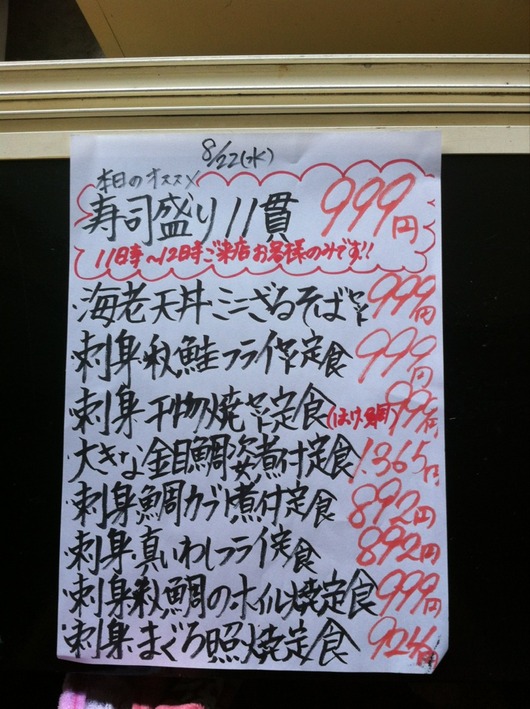 8/22(水)
本日のオススメ
寿司盛り11貫 999円
11時〜12時ご来店お客様のみです!!
海老天丼・ミニざるそばセット 999円
・刺身・秋鮭フライ定食 999円
・刺身・干物焼定食(ほっけ・鯛) 999円
大きな金目鯛姿煮付定食 1.365円
・刺身・鯛カブト煮付定食 892円
・刺身・真いわしフライ定食 892円
・刺身・秋鯛のホイル焼定食 999円
・刺身・まぐろ照焼定食 924円